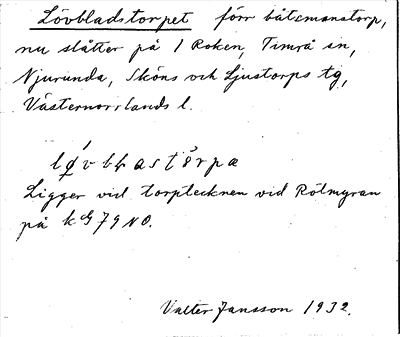 Lövbladstorpet förr båtsmanstorp,
nu slåtter på 1 Roken, Timrå sn,
Njurunda, Sköns och Ljustorps tg,
Västernorrlands l.
lǿvbḷastòrpa
Ligger vid torptecknen vid Rötmyran
på kG79NO.
Valter Jansson 1932.